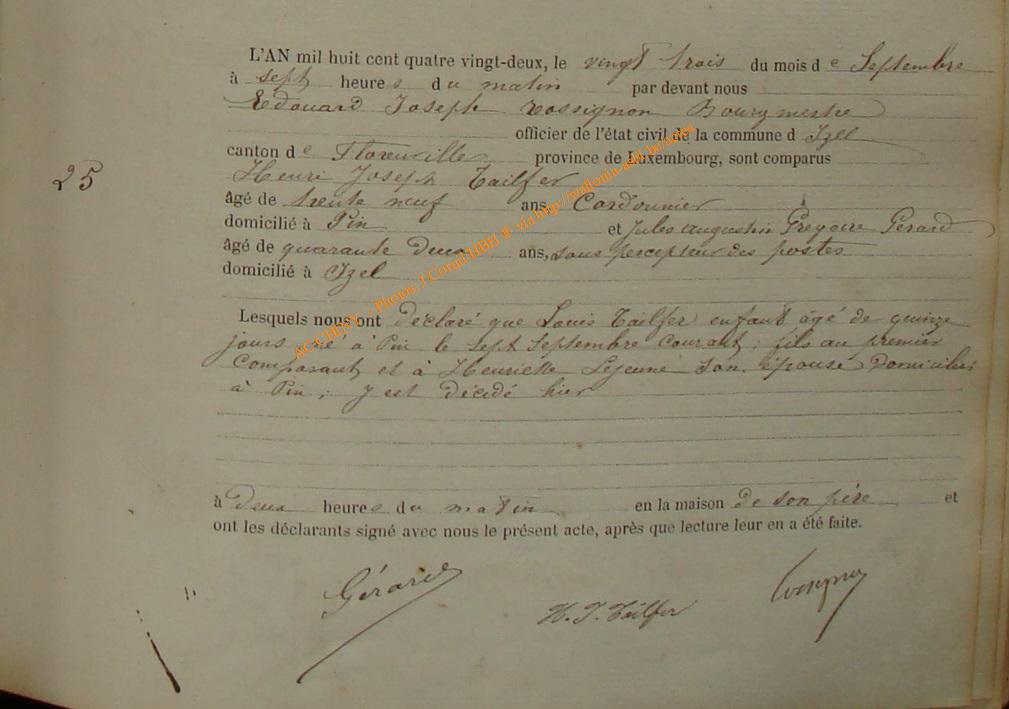 L'AN mil huit cent quatre vingt-deux, le vingt trois du mois de Septembre
à sept heures du matin par devant nous
Edouard Joseph Rossignon Bourgmestre
officier de l'état civil de la commune d Izel
canton de Florenville province de Luxembourg, sont comparus
25
Henri Joseph Tailfer
âgé de trente neuf ans, Cordonnier
domicilié à Pin et Jules Augustin Grégoire Gérard
âgé de quarante deux ans, sous percepteur des postes
domicilié à Izel
Lesquels nous ont déclaré que Louis Tailfer enfant âgé de quinze
jours né à Pin le sept Septembre courant; fils au premier
Comparant et à Henriette Lejeune son épouse Domiciliés
à Pin; y est décédé hier
à Deux heures du matin en la maison de son père et
ont les déclarants signé avec nous le présent acte, après que lecture leur en a été faite.
Gérard
H. J. Tailfer
ACCHINY - Photos: J Cornil HBH ® via http://wallonia-asbl.be/actes